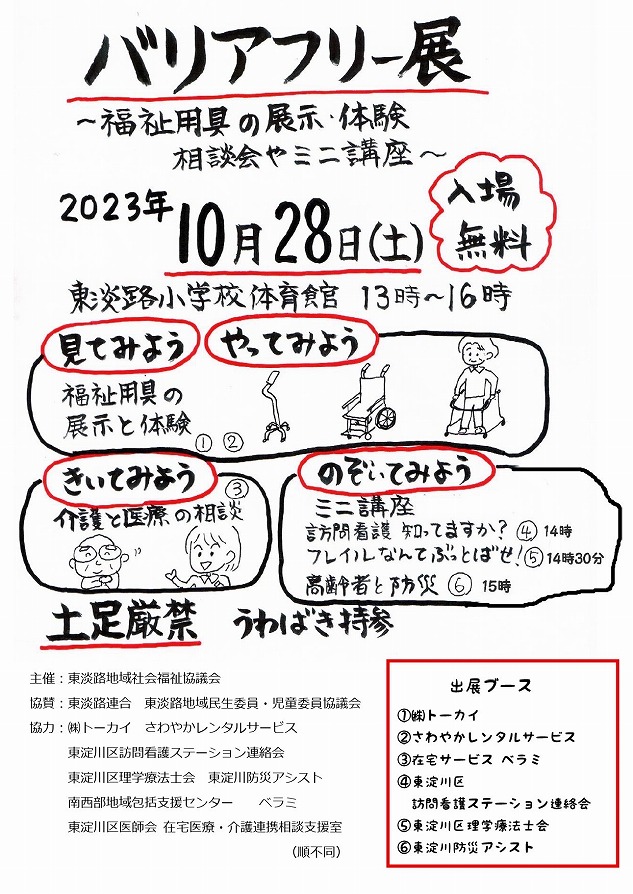 バリアフリー展
～福祉用具の展示・体験
相談会やミニ講座～
入場
無料
2023年
10月28日(土)
東淡路小学校体育館 13時～16時
見てみよう やってみよう
福祉用具の
展示と体験 ① ②
きいてみよう
③
介護と医療の相談
のぞいてみよう
ミニ講座
訪問看護 知ってますか？ ④ 14時
フレイルなんてぶっとばせ！ ⑤ 14時30分
高齢者と防災 ⑥ 15時
土足厳禁 うわばき持参
主催：東淡路地域社会福祉協議会
協賛：東淡路連合 東淡路地域民生委員・児童委員協議会
協力：㈱トーカイ さわやかレンタルサービス
東淀川区訪問看護ステーション連絡会
東淀川区理学療法士会 東淀川防災アシスト
南西部地域包括支援センター ベラミ
東淀川区医師会 在宅医療・介護連携相談支援室
（順不同）
出展ブース
①㈱トーカイ
②さわやかレンタルサービス
③在宅サービス ベラミ
④東淀川区
訪問看護ステーション連絡会
⑤東淀川区理学療法士会
⑥東淀川防災アシスト